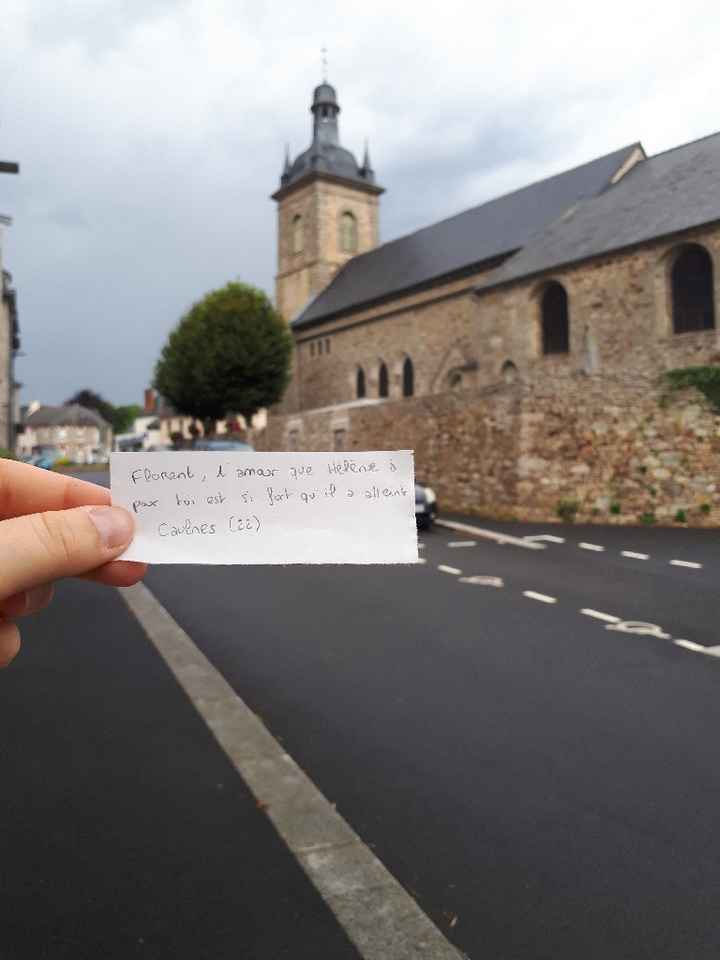 Florent, l'amour que Hélène a
pour toi est si fort qu'il a atteint
Caulnes (22)